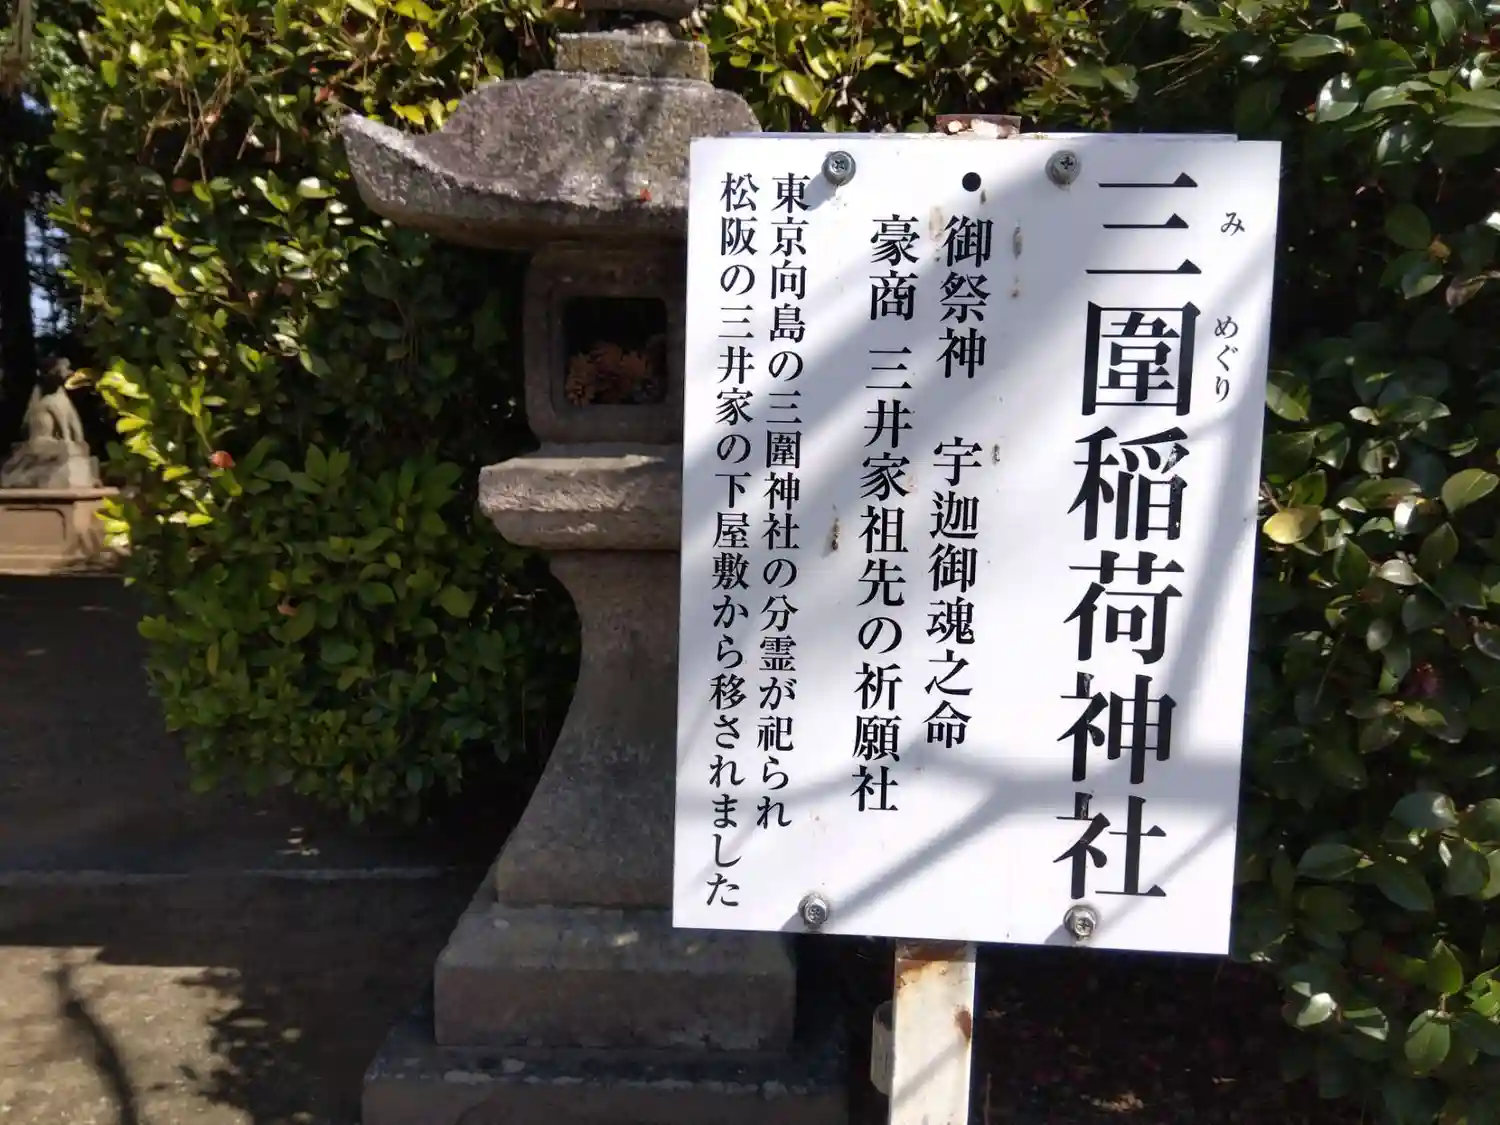 三圍稲荷神社
み めぐり
・御祭神 宇迦御魂之命
豪商 三井家祖先の祈願社
東京向島の三圍神社の分霊が祀られ
松阪の三井家の下屋敷から移されました